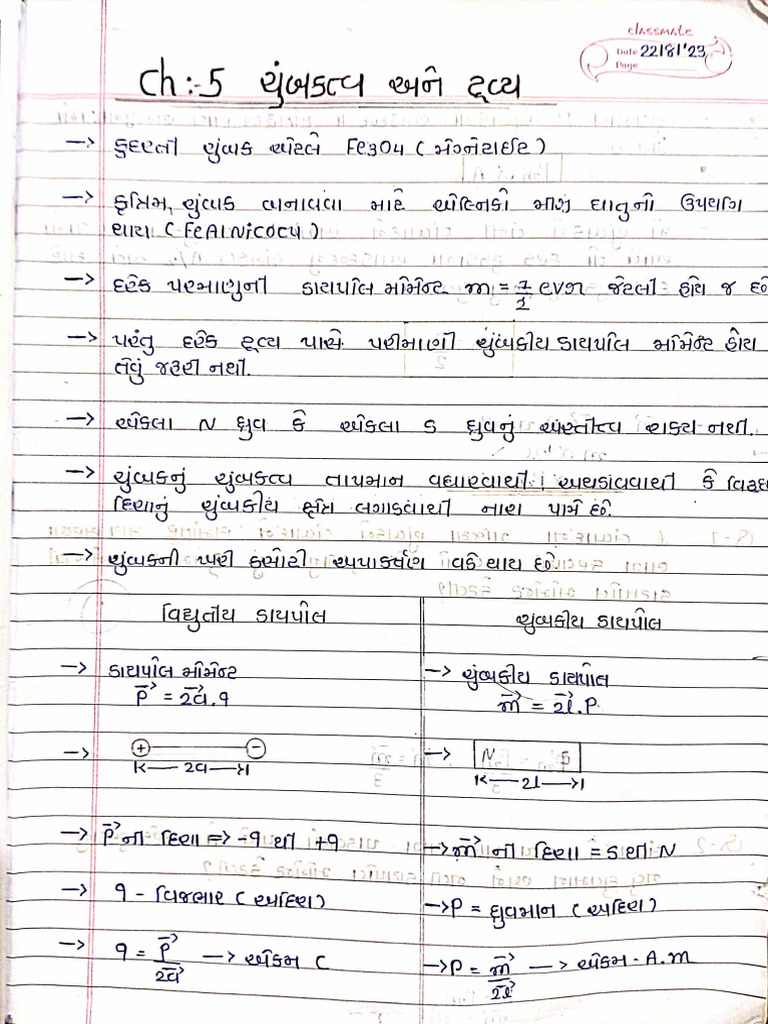 classmate
Date 22/8/'23
Page
Ch:-5 ચુંબકત્વ અને દ્રવ્ય
-> કુદરતી ચુંબક એટલે Fe3O4 ( મેગ્નેટાઈટ )
-> કૃત્રિમ ચુંબક બનાવવા માટે એલ્નિકો મિશ્ર ધાતુનો ઉપયોગ
થાય ( FeAlNiCOCu )
-> દરેક પરમાણુની ડાયપોલ મોમેન્ટ m = 7/2 evr જેટલી હોય જ છે
-> પરંતુ દરેક દ્રવ્ય પાસે પરીમાણી ચુંબકીય ડાયપોલ મોમેન્ટ હોય
તેવું જરૂરી નથી.
-> એકલા N ધ્રુવ કે એકલા S ધ્રુવનું અસ્તીત્વ શક્ય નથી.
-> ચુંબકનું ચુંબકત્વ તાપમાન વધારવાથી, અથડાવવાથી કે વિરૂદ્ધ
દિશાનું ચુંબકીય ક્ષેત્ર લગાડવાથી નાશ પામે છે.
-> ચુંબકની ખરી કસોટી અપાકર્ષણ વડે થાય છે.
વિદ્યુતીય ડાયપોલ
ચુંબકીય ડાયપોલ
-> ડાયપોલ મોમેન્ટ
p⃗ = 2a⃗.q
-> ચુંબકીય ડાયપોલ
m⃗ = 2l⃗.P
-> + -
K— 2a —>|
-> N S
K— 2l —>|
-> p⃗ ની દિશા => -q થી +q
-> m⃗ ની દિશા = S થી N
-> q - વિજભાર ( અદિશ )
-> P = ધ્રુવમાન ( અદિશ )
-> q = p⃗/2a⃗ -> એકમ C
-> P = m⃗/2l⃗ -> એકમ - A.m